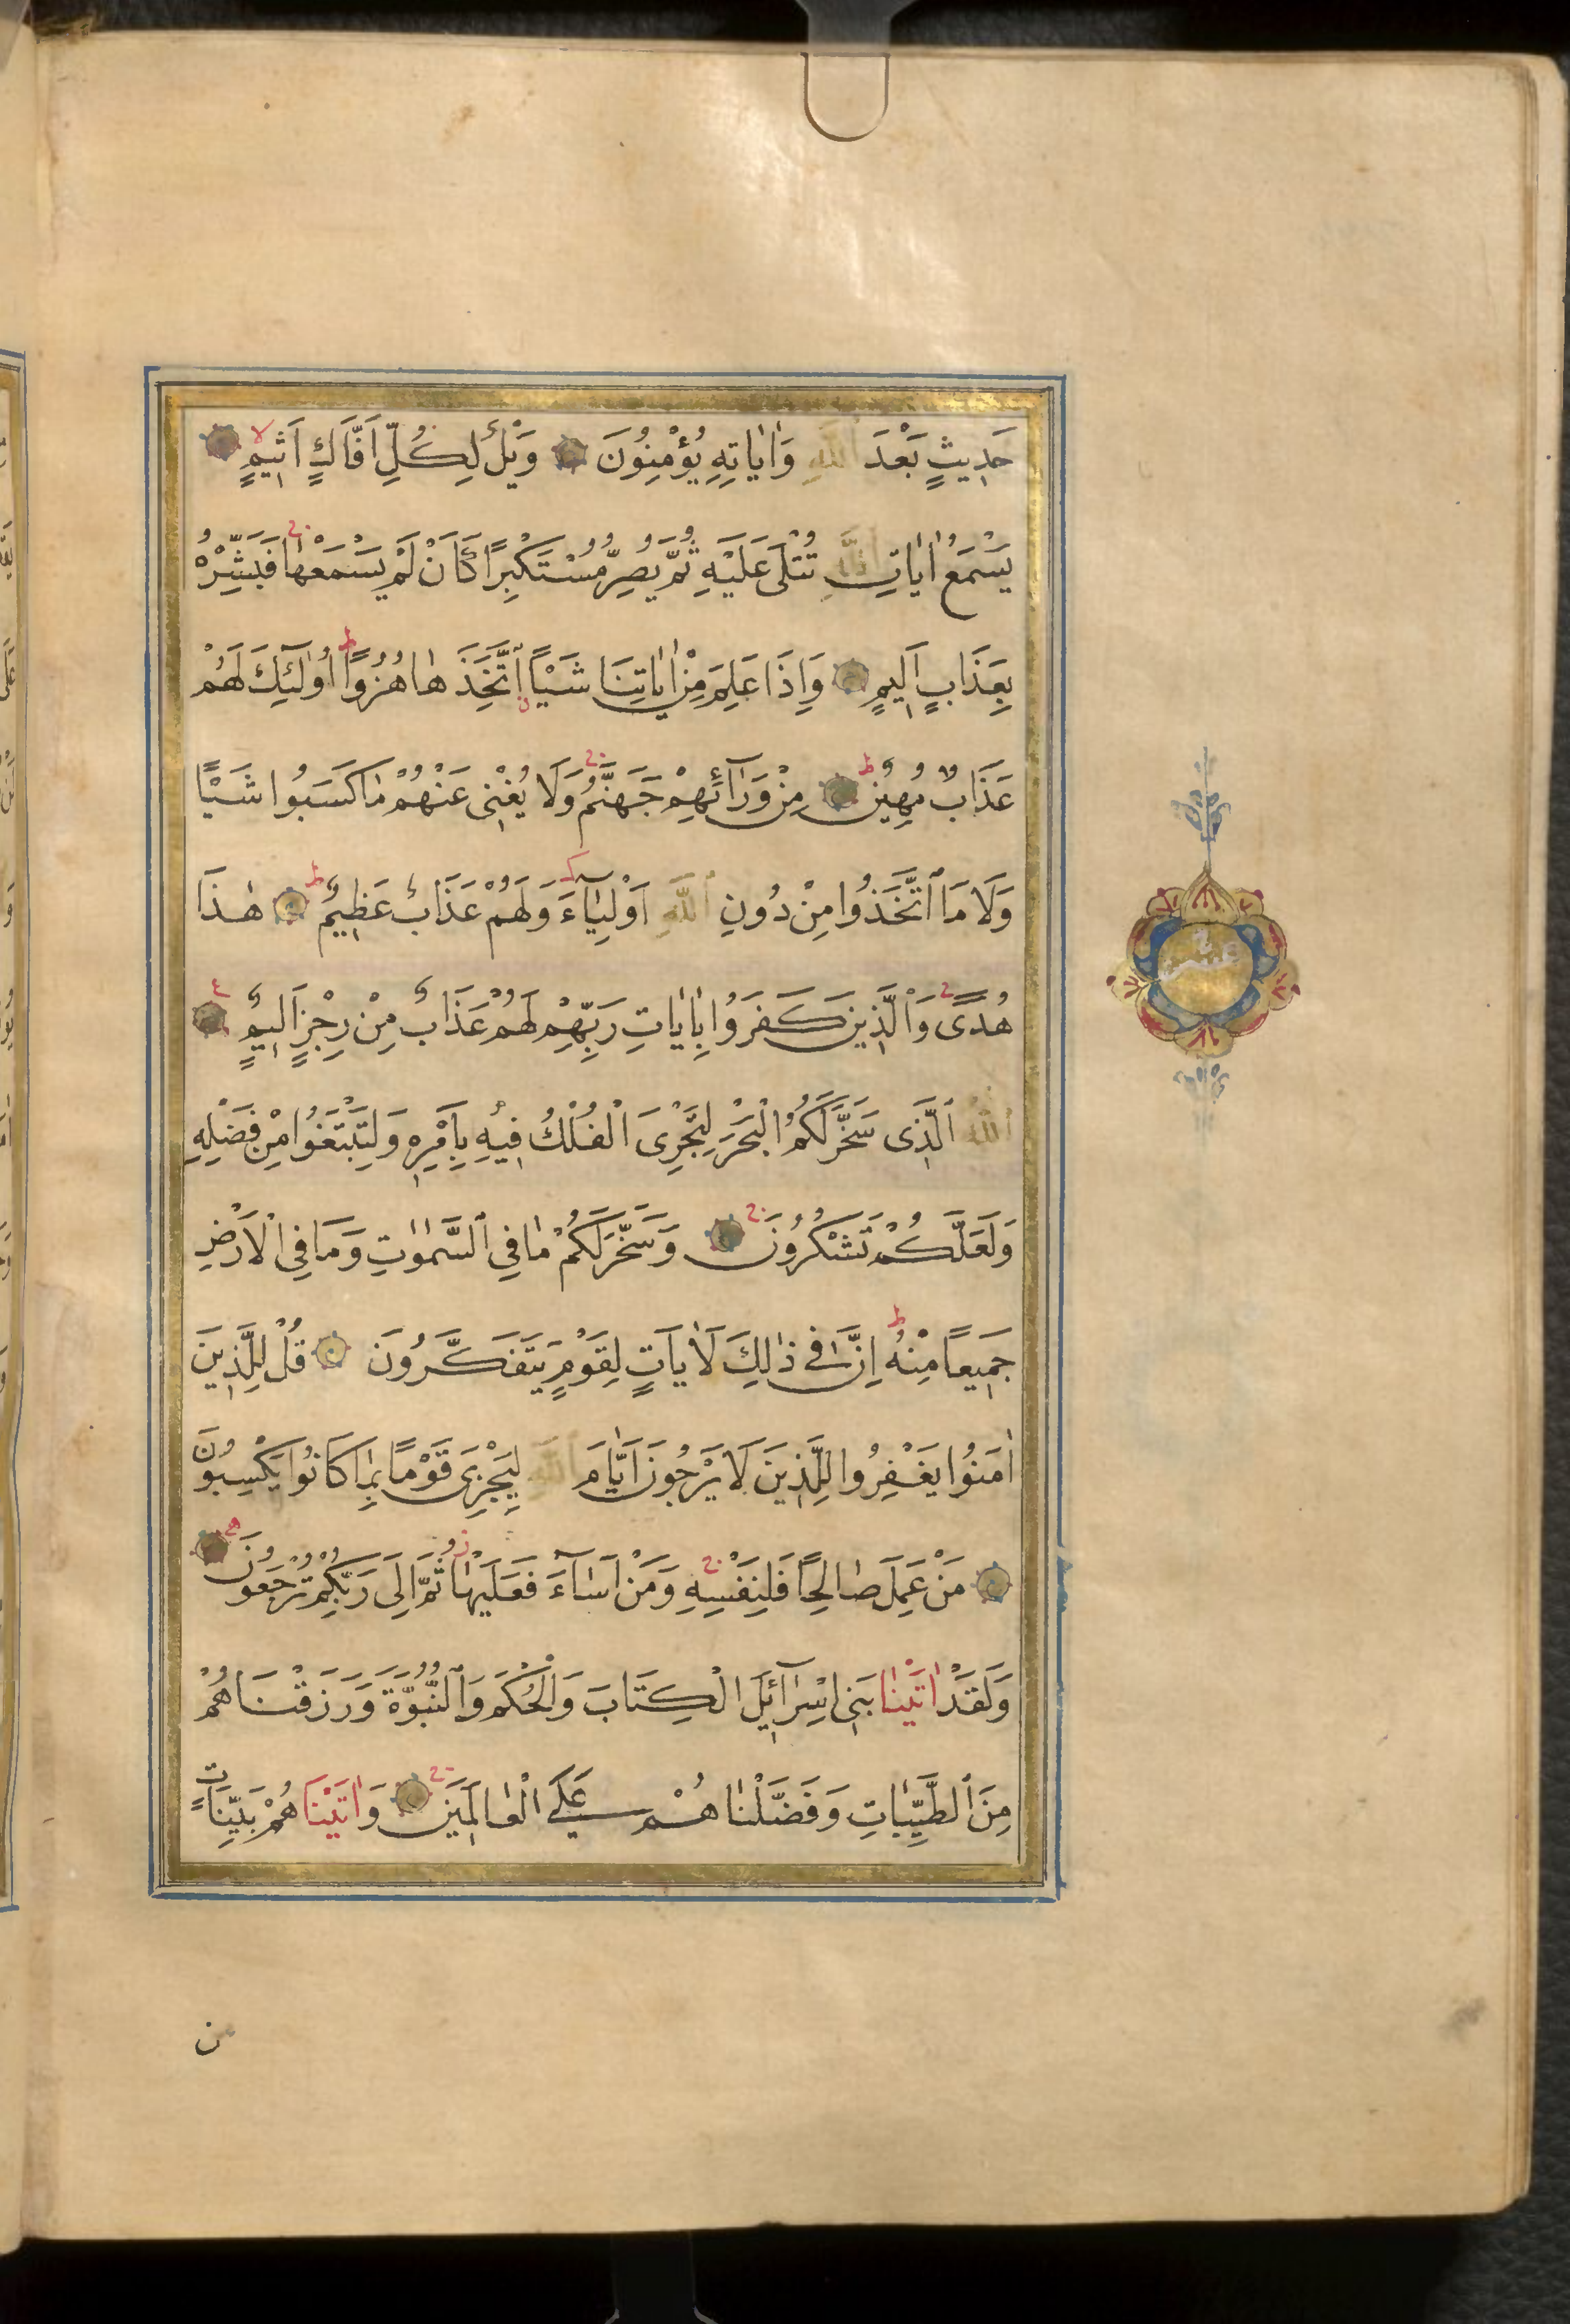 حَدِيثٍ بَعْدَ ٱللَّهِ وَاٰيَاتِهِ يُؤْمِنُونَ وَيْلٌ لِكُلِّ اَفَّاكٍ اَثِيمٍ لا
يَسْمَعُ اٰيَاتِ ٱللَّهِ تُتْلٰى عَلَيْهِ ثُمَّ يُصِرُّ مُسْتَكْبِرًا كَاَنْ لَمْ يَسْمَعْهَا ج فَبَشِّرْهُ
بِعَذَابٍ اَلِيمٍ وَاِذَا عَلِمَ مِنْ اٰيَاتِنَا شَيْئًا ٱتَّخَذَهَا هُزُوًا ط اُولٰئِكَ لَهُمْ
عَذَابٌ مُهِينٌ ط مِنْ وَرَآئِهِمْ جَهَنَّمُ ج وَلَا يُغْنِى عَنْهُمْ مَا كَسَبُوا شَيْئًا
وَلَا مَا ٱتَّخَذُوا مِنْ دُونِ ٱللَّهِ اَوْلِيَآءَ وَلَهُمْ عَذَابٌ عَظِيمٌ ط هٰذَا
هُدًى ج وَٱلَّذِينَ كَفَرُوا بِاٰيَاتِ رَبِّهِمْ لَهُمْ عَذَابٌ مِنْ رِجْزٍ اَلِيمٌ ع
ٱللَّهُ ٱلَّذِى سَخَّرَ لَكُمُ الْبَحْرَ لِتَجْرِىَ الْفُلْكُ فِيهِ بِاَمْرِهِ وَلِتَبْتَغُوا مِنْ فَضْلِهِ
وَلَعَلَّكُمْ تَشْكُرُونَ ج وَسَخَّرَ لَكُمْ مَا فِي ٱلسَّمٰوَاتِ وَمَا فِي الْاَرْضِ
جَمِيعًا مِنْهُ ط اِنَّ فِي ذٰلِكَ لَاٰيَاتٍ لِقَوْمٍ يَتَفَكَّرُونَ قُلْ لِلَّذِينَ
اٰمَنُوا يَغْفِرُوا لِلَّذِينَ لَا يَرْجُونَ اَيَّامَ ٱللَّهِ لِيَجْزِىَ قَوْمًا بِمَا كَانُوا يَكْسِبُونَ
مَنْ عَمِلَ صَالِحًا فَلِنَفْسِهِ ج وَمَنْ اَسَآءَ فَعَلَيْهَا ز ثُمَّ اِلٰى رَبِّكُمْ تُرْجَعُونَ
وَلَقَدْ اٰتَيْنَا بَنِى اِسْرَآئِيلَ الْكِتَابَ وَالْحُكْمَ وَٱلنُّبُوَّةَ وَرَزَقْنَاهُمْ
مِنَ ٱلطَّيِّبَاتِ وَفَضَّلْنَاهُمْ عَلَى الْعَالَمِينَ ج وَاٰتَيْنَاهُمْ بَيِّنَاتٍ
عشر